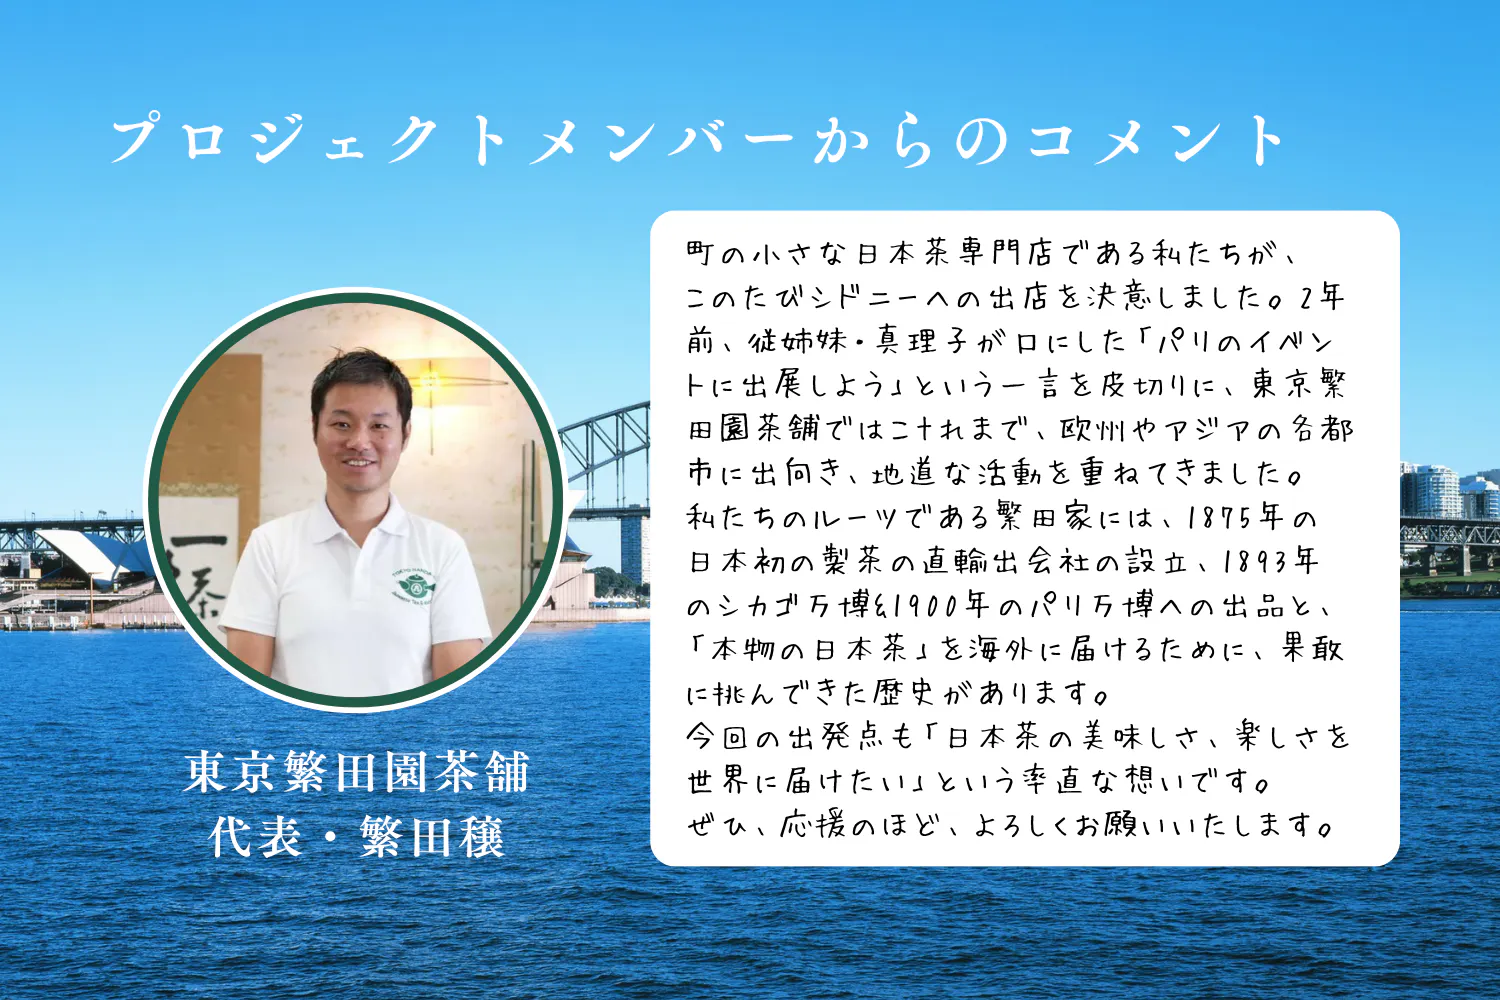 プロジェクトメンバーからのコメント
町の小さな日本茶専門店である私たちが、
このたびシドニーへの出店を決意しました。2年
前、従姉妹・真理子が口にした「パリのイベン
トに出展しよう」という一言を皮切りに、東京繁
田園茶舗ではこれまで、欧州やアジアの各都
市に出向き、地道な活動を重ねてきました。
私たちのルーツである繁田家には、1875年の
日本初の製茶の直輸出会社の設立、1893年
のシカゴ万博&1900年のパリ万博への出品と、
「本物の日本茶」を海外に届けるために、果敢
に挑んできた歴史があります。
今回の出発点も「日本茶の美味しさ、楽しさを
世界に届けたい」という率直な想いです。
ぜひ、応援のほど、よろしくお願いいたします。
東京繁田園茶舗
代表・繁田穣